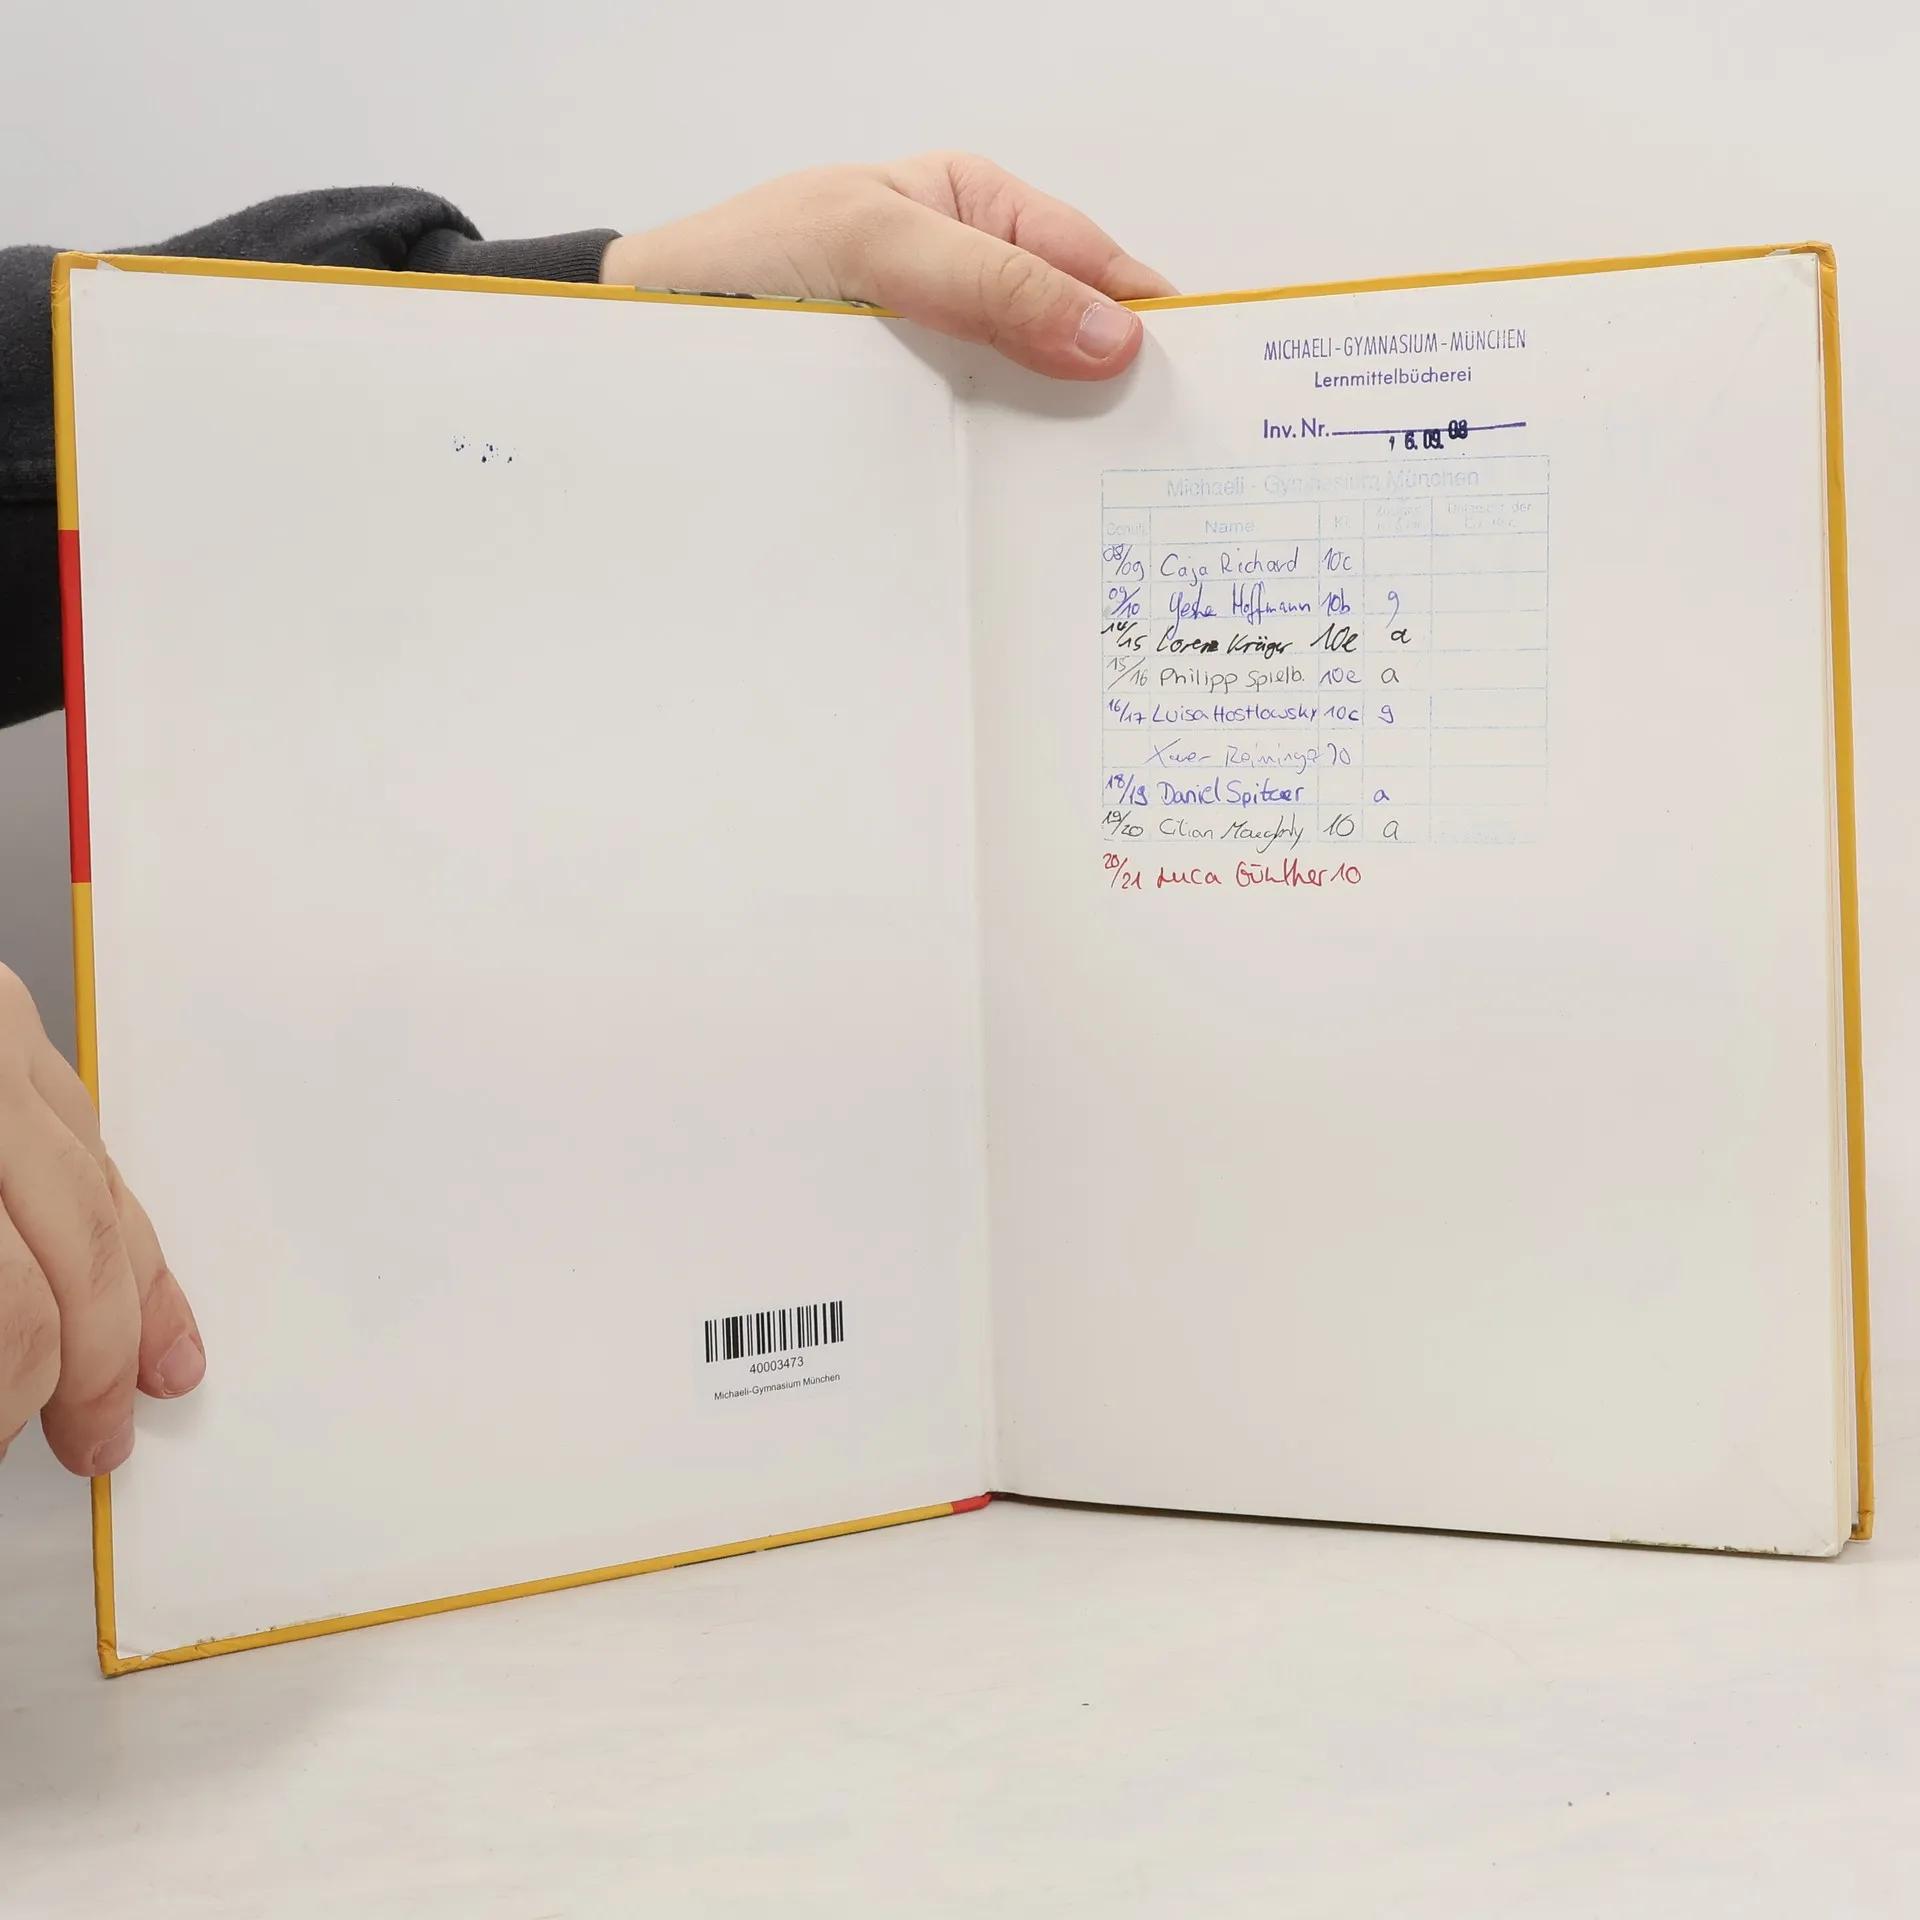 40003473
Michaeli-Gymnasium München
MICHAELI-GYMNASIUM-MÜNCHEN
Lernmittelbücherei
Inv. Nr. 16.09.08
Michaeli - Gymnasium München
Name Kl.
08/09 Caja Richard 10c
09/10 Hoffmann 10b g
14/15 Lorenz Krüger 10e a
15/16 Philipp Spielb. 10e a
16/17 Luisa Hostlowsky 10c g
Xaver Reininger 10
18/19 Daniel Spitzer a
19/20 Cilian 10 a
20/21 Luca Günther 10